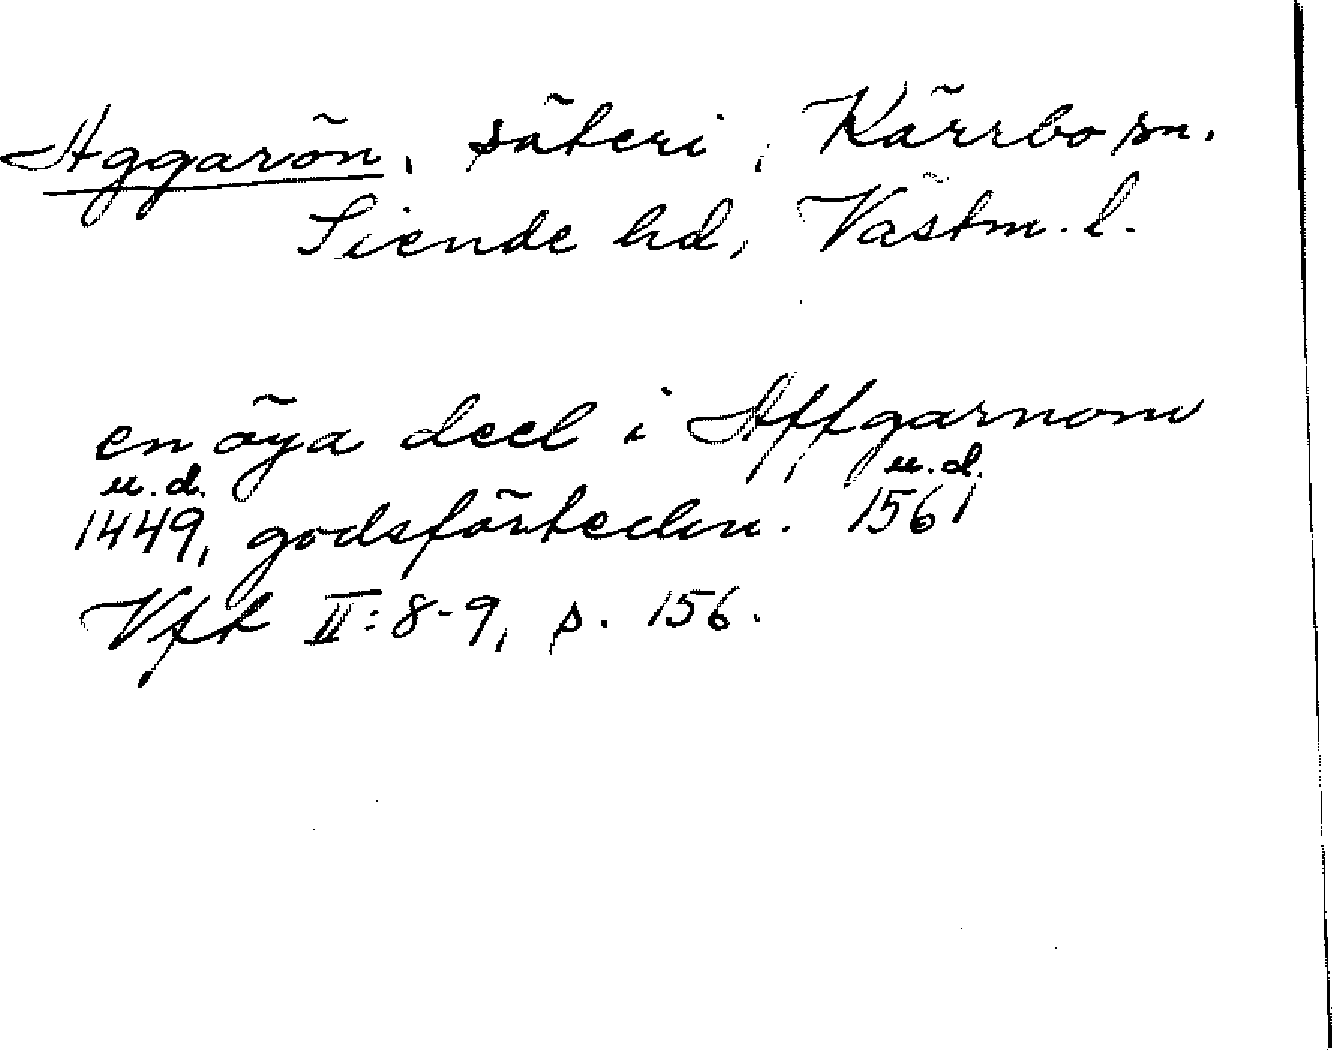 Aggarön, säteri, Kärrbo sn.
Siende hd, Västm. l.
en öya deel i Affgarnom
u.d. u.d.
1449, godsförteckn. 1561
Vfk II: 8-9, p. 156.